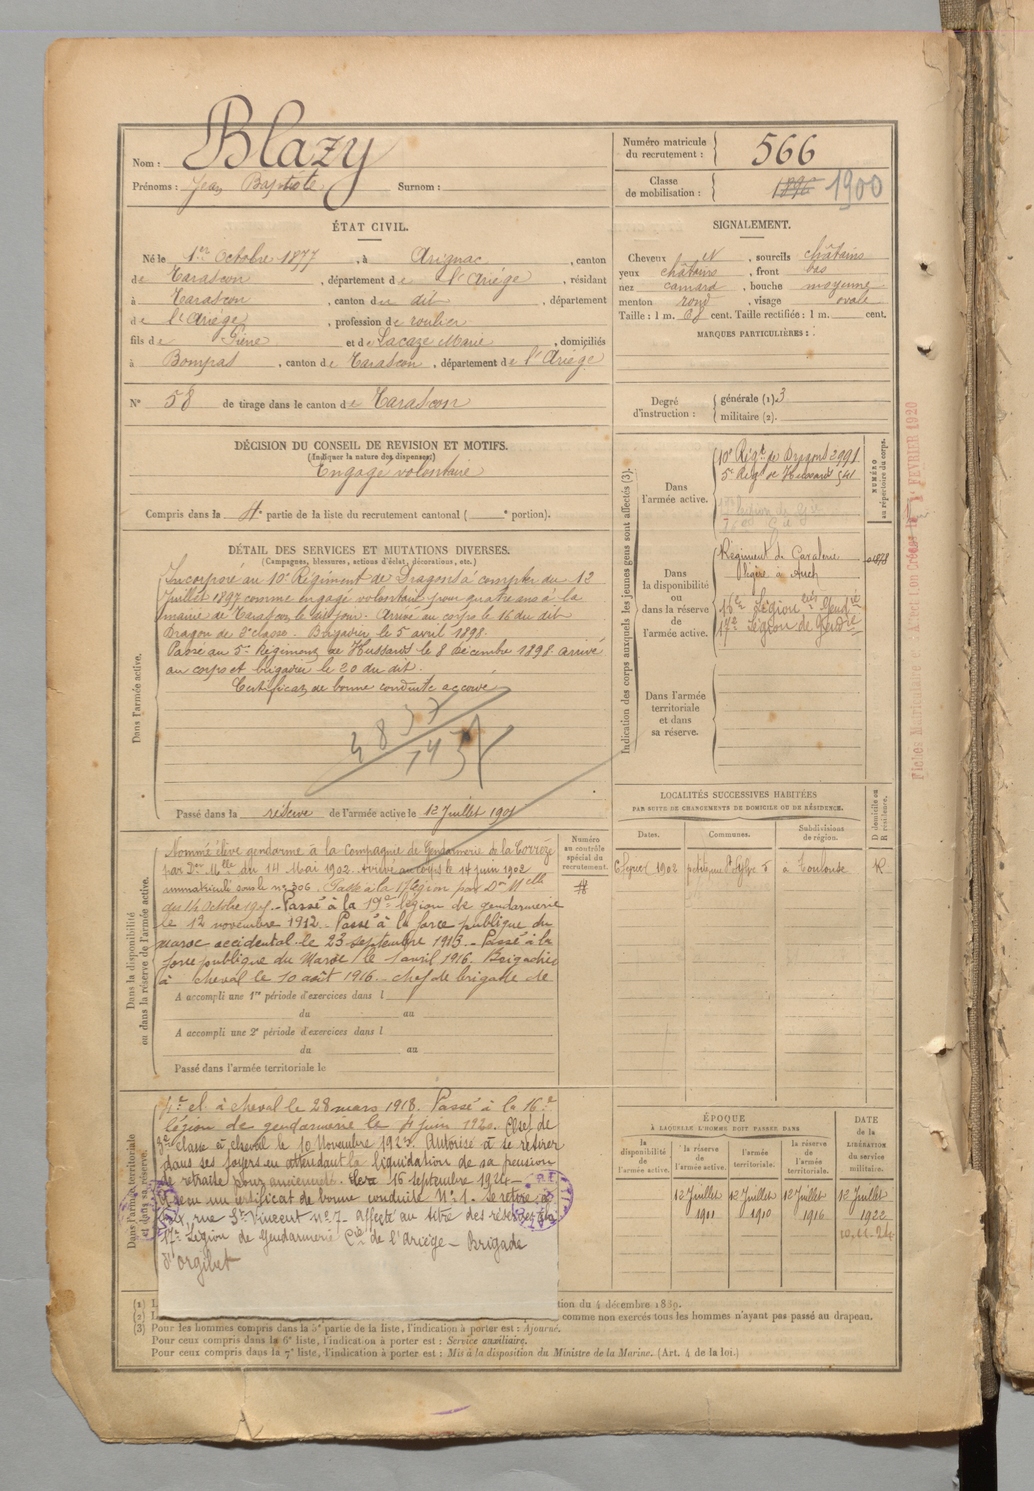 Nom : Blazy
Prénoms : Jean Baptiste Surnom :
Numéro matricule du recrutement : 566
Classe de mobilisation : 1896 1900
ÉTAT CIVIL.
Né le 1er Octobre 1877, à Arignac, canton
de Tarascon, département de l'Ariége, résidant
à Tarascon, canton de dit, département
de l'Ariége, profession de roulier
fils de Pierre et de Lacaze Marie, domiciliés
à Bompas, canton de Tarascon, département de l'Ariége
N° 58 de tirage dans le canton de Tarascon
DÉCISION DU CONSEIL DE REVISION ET MOTIFS.
(Indiquer la nature des dispenses.)
Engagé volontaire
Compris dans la 4e partie de la liste du recrutement cantonal ( e portion).
DÉTAIL DES SERVICES ET MUTATIONS DIVERSES.
(Campagnes, blessures, actions d'éclat, décorations, etc.)
Dans l'armée active.
Incorporé au 10e Régiment de Dragons à compter du 12
Juillet 1897 comme engagé volontaire pour quatre ans à la
mairie de Tarascon le dit jour. Arrivé au corps le 16 du dit
Dragon de 2e classe. Brigadier le 5 avril 1898.
Passé au 5e Régiment de Hussards le 8 Décembre 1898 arrivé
au corps et brigadier le 20 du dit.
Certificat de bonne conduite accordé
Passé dans la réserve de l'armée active le 12 Juillet 1901
Dans la disponibilité ou dans la réserve de l'armée active.
Nommé élève gendarme à la Compagnie de Gendarmerie de la Corrèze
par Don Mlle du 14 Mai 1902. Arrivé au corps le 14 juin 1902
immatriculé sous le no 306. Passé à la 17 légion par Don Mlle
du 14 Octobre 1907. Passé à la 19e légion de gendarmerie
le 12 novembre 1912. Passé à la force publique du
maroc occidental le 23 septembre 1915. Passé à la
force publique du Maroc le 1 avril 1916. Brigadier
à cheval le 10 août 1916. chef de brigade de
A accompli une 1re période d'exercices dans l
du au
A accompli une 2e période d'exercices dans l
du au
Passé dans l'armée territoriale le
Numéro au contrôle spécial du recrutement.
Dans l'armée territoriale et dans sa réserve.
4e cl à cheval le 28 mars 1918. Passé à la 16e
légion de gendarmerie le 4 juin 1920. Chef de
3e classe à cheval le 10 Novembre 1923. Autorisé à se retirer
dans ses foyers en attendant la liquidation de sa pension
de retraite pour ancienneté. 16 septembre 1924
Reçu un certificat de bonne conduite N° 1. Se retire à
rue St Vincent n° 7. Affecté au titre des réserves à la
17e Légion de Gendarmerie Cie de l'Ariège - Brigade
d'Orgibet
SIGNALEMENT.
Cheveux N, sourcils châtains
yeux châtains, front bas
nez camard, bouche moyenne
menton rond, visage ovale
Taille : 1 m. 68 cent. Taille rectifiée : 1 m. cent.
MARQUES PARTICULIÈRES :
Degré d'instruction : générale (1) 3
militaire (2).
Indication des corps auxquels les jeunes gens sont affectés (3).
NUMÉRO au répertoire du corps.
Dans l'armée active.
10e Régt de Dragons 2991
5e Régt de Hussards 541
Dans la disponibilité ou dans la réserve de l'armée active.
Régiment de Cavalerie
légère à Auch
16e Légion
17e Légion de Gendrie
Dans l'armée territoriale et dans sa réserve.
LOCALITÉS SUCCESSIVES HABITÉES
PAR SUITE DE CHANGEMENTS DE DOMICILE OU DE RÉSIDENCE.
Dates. Communes. Subdivisions de région. D domicile ou R résidence.
6 février 1902 à Toulouse R
ÉPOQUE
À LAQUELLE L'HOMME DOIT PASSER DANS
la disponibilité de l'armée active. la réserve de l'armée active. l'armée territoriale. la réserve de l'armée territoriale. DATE de la LIBÉRATION du service militaire.
12 Juillet 12 Juillet 12 Juillet 12 Juillet
1911 1910 1916 1922
10.11.24
tion du 4 décembre 1889.
comme non exercés tous les hommes n'ayant pas passé au drapeau.
(3) Pour les hommes compris dans la 5e partie de la liste, l'indication à porter est : Ajourné.
Pour ceux compris dans la 6e liste, l'indication à porter est : Service auxiliaire.
Pour ceux compris dans la 7e liste, l'indication à porter est : Mis à la disposition du Ministre de la Marine. (Art. 4 de la loi.)